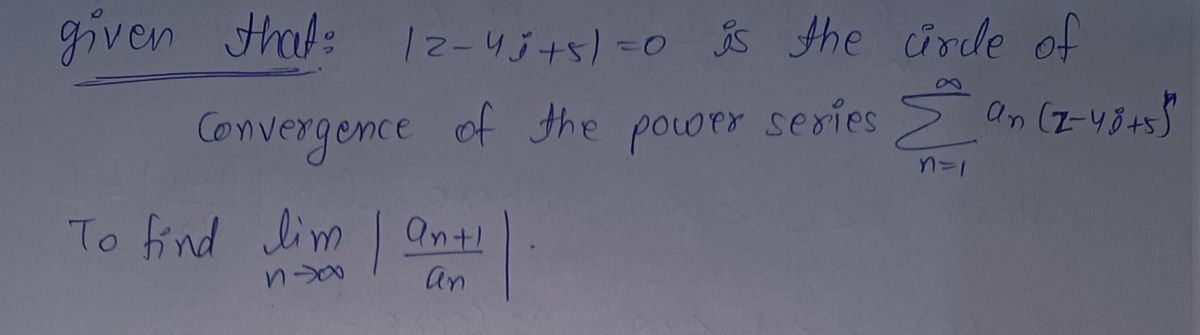 given that: |z-4j+5|=0 is the circle of
Convergence of the power series ∞∑n=1 an (z-4j+5)^n
To find lim n→∞ | an+1 / an | .